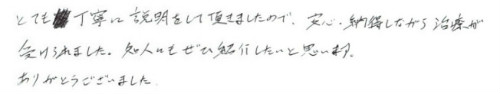 とても丁寧に説明をして頂きましたので、安心・納得しながら治療が
受けられました。知人にもぜひ紹介したいと思います。
ありがとうございました。